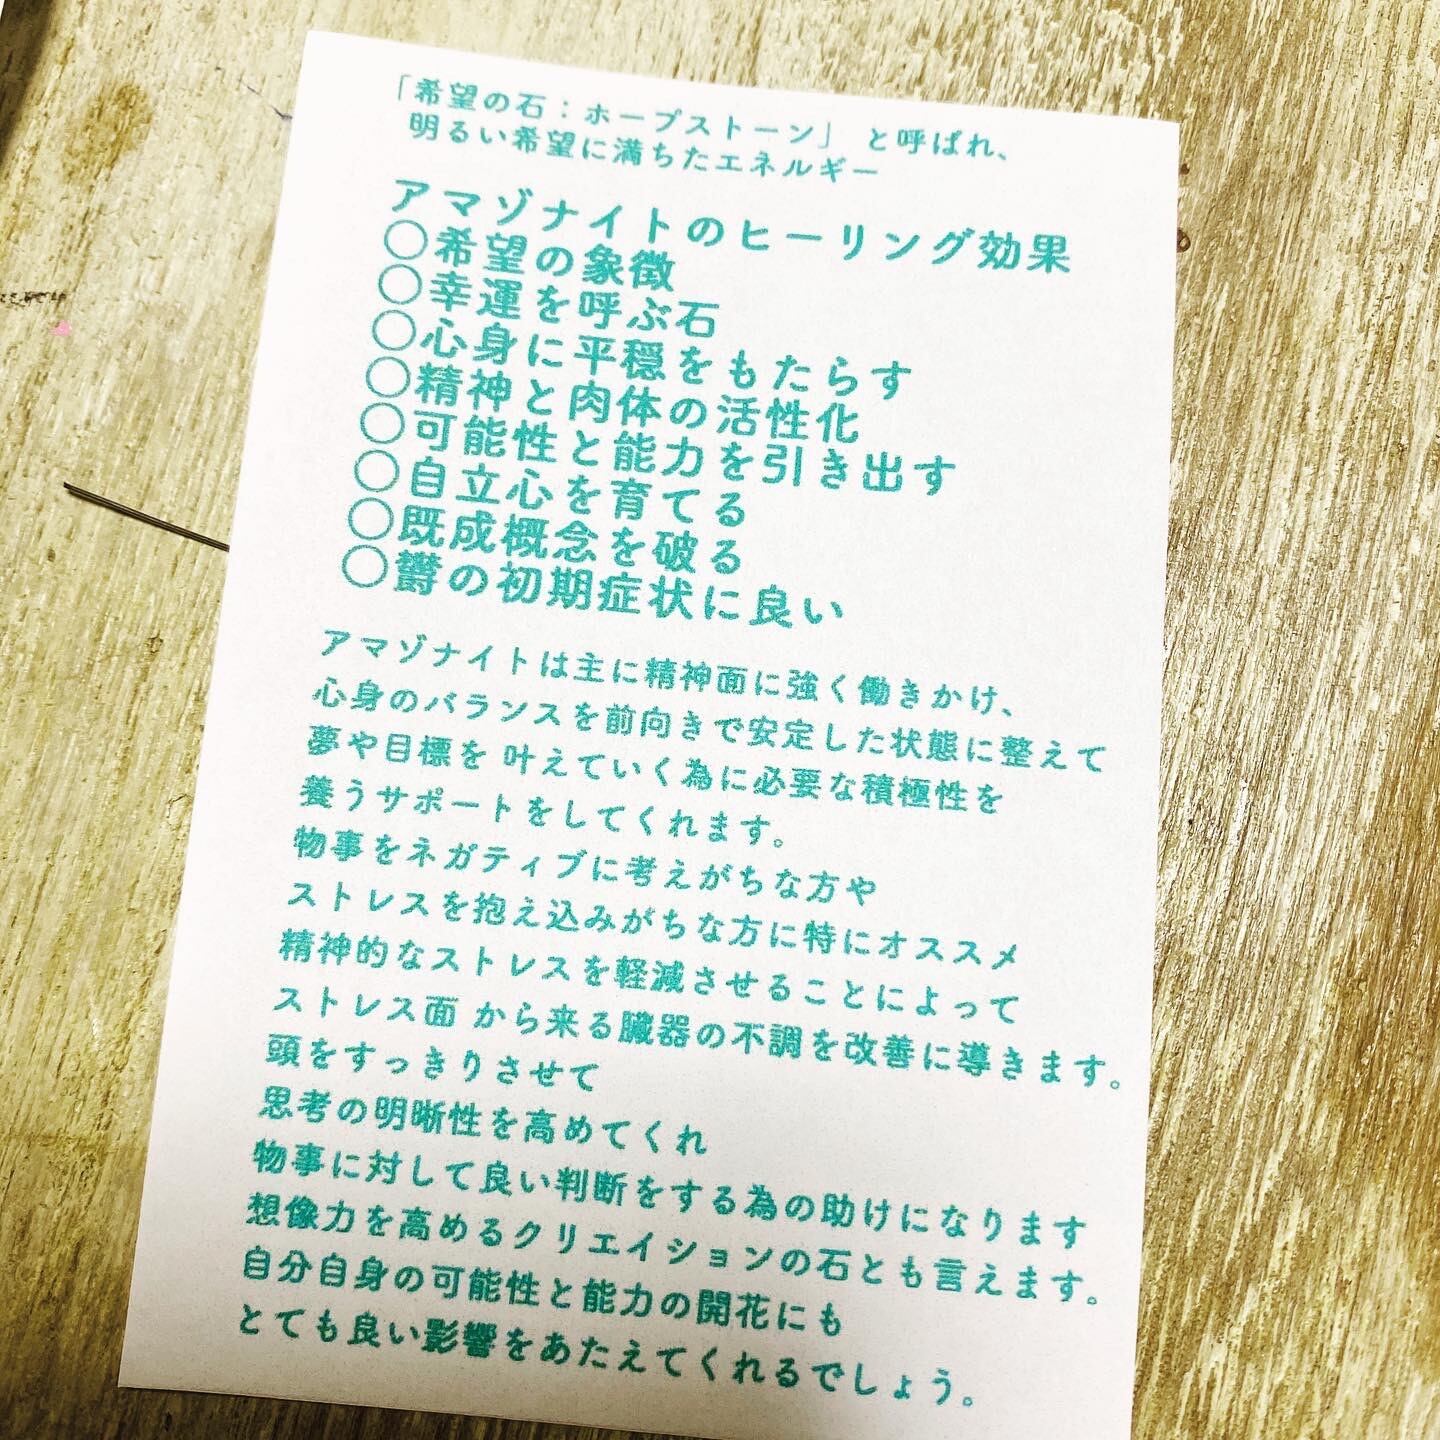 「希望の石：ホープストーン」 と呼ばれ、
明るい希望に満ちたエネルギー
アマゾナイトのヒーリング効果
○希望の象徴
○幸運を呼ぶ石
○心身に平穏をもたらす
○精神と肉体の活性化
○可能性と能力を引き出す
○自立心を育てる
○既成概念を破る
○欝の初期症状に良い
アマゾナイトは主に精神面に強く働きかけ、
心身のバランスを前向きで安定した状態に整えて
夢や目標を 叶えていく為に必要な積極性を
養うサポートをしてくれます。
物事をネガティブに考えがちな方や
ストレスを抱え込みがちな方に特にオススメ
精神的なストレスを軽減させることによって
ストレス面 から来る臓器の不調を改善に導きます。
頭をすっきりさせて
思考の明晰性を高めてくれ
物事に対して良い判断をする為の助けになります
想像力を高めるクリエイションの石とも言えます。
自分自身の可能性と能力の開花にも
とても良い影響をあたえてくれるでしょう。